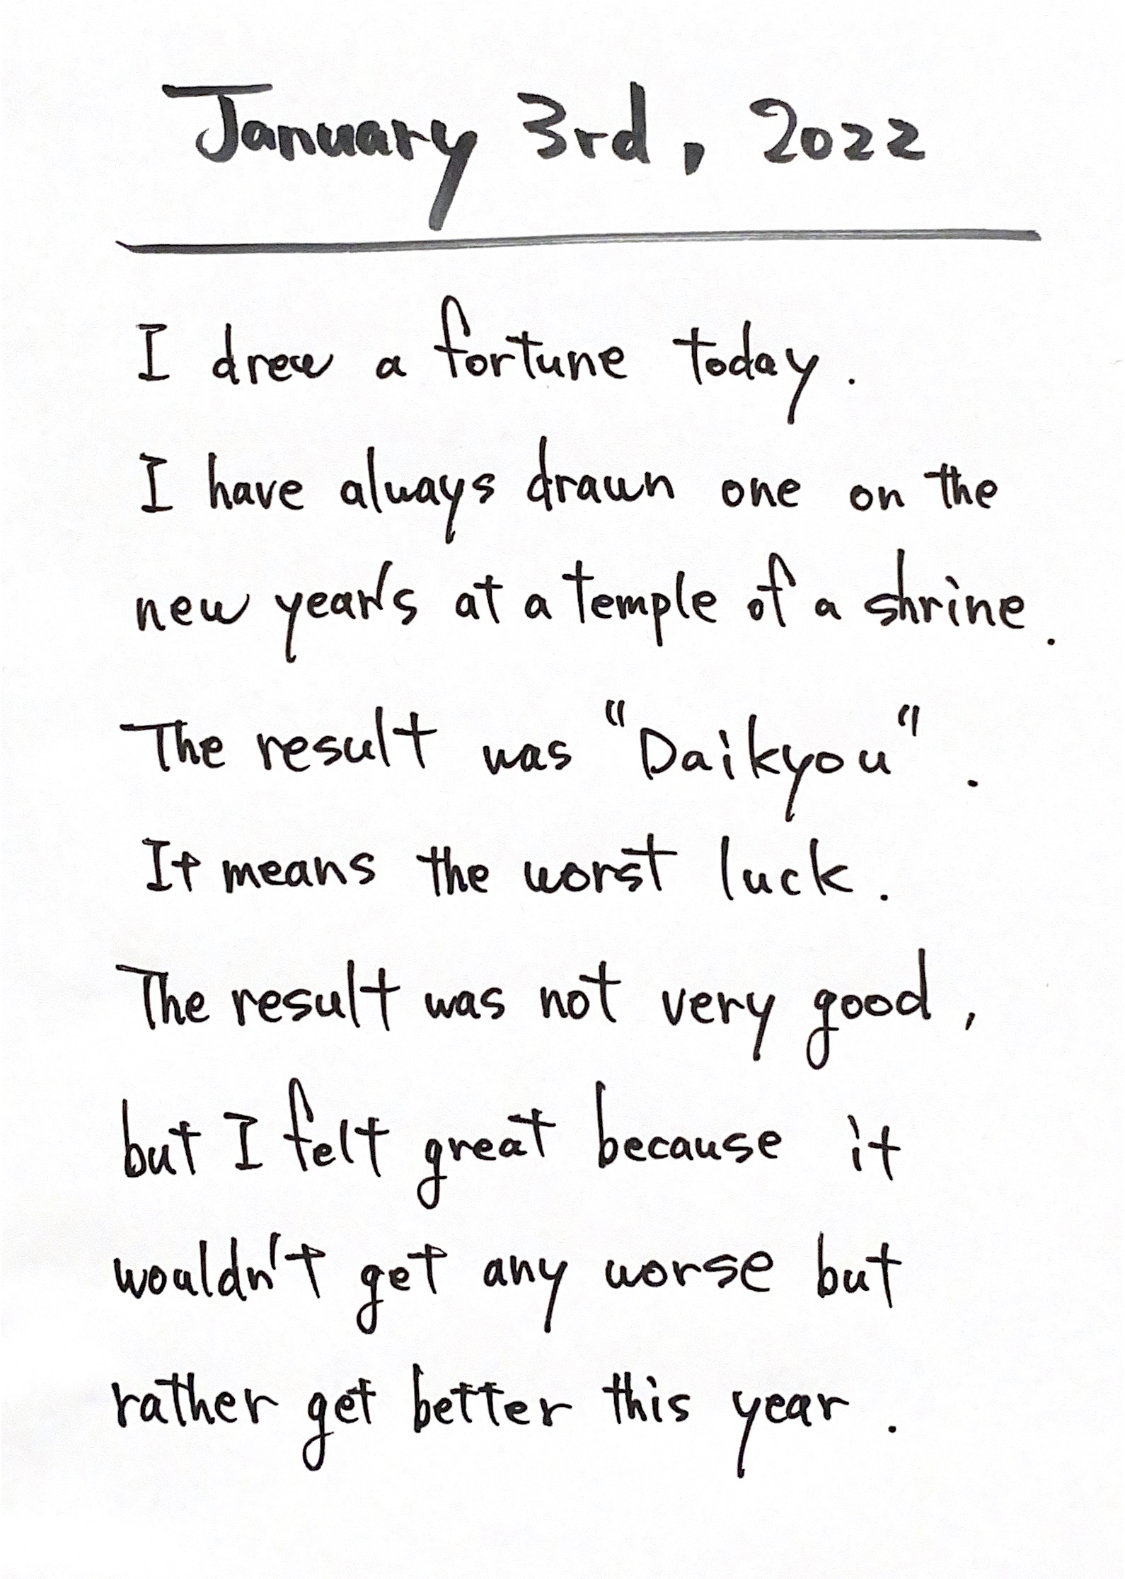 January 3rd, 2022
I drew a fortune today.
I have always drawn one on the
new year's at a temple of a shrine.
The result was "Daikyou".
It means the worst luck.
The result was not very good,
but I felt great because it
wouldn't get any worse but
rather get better this year.